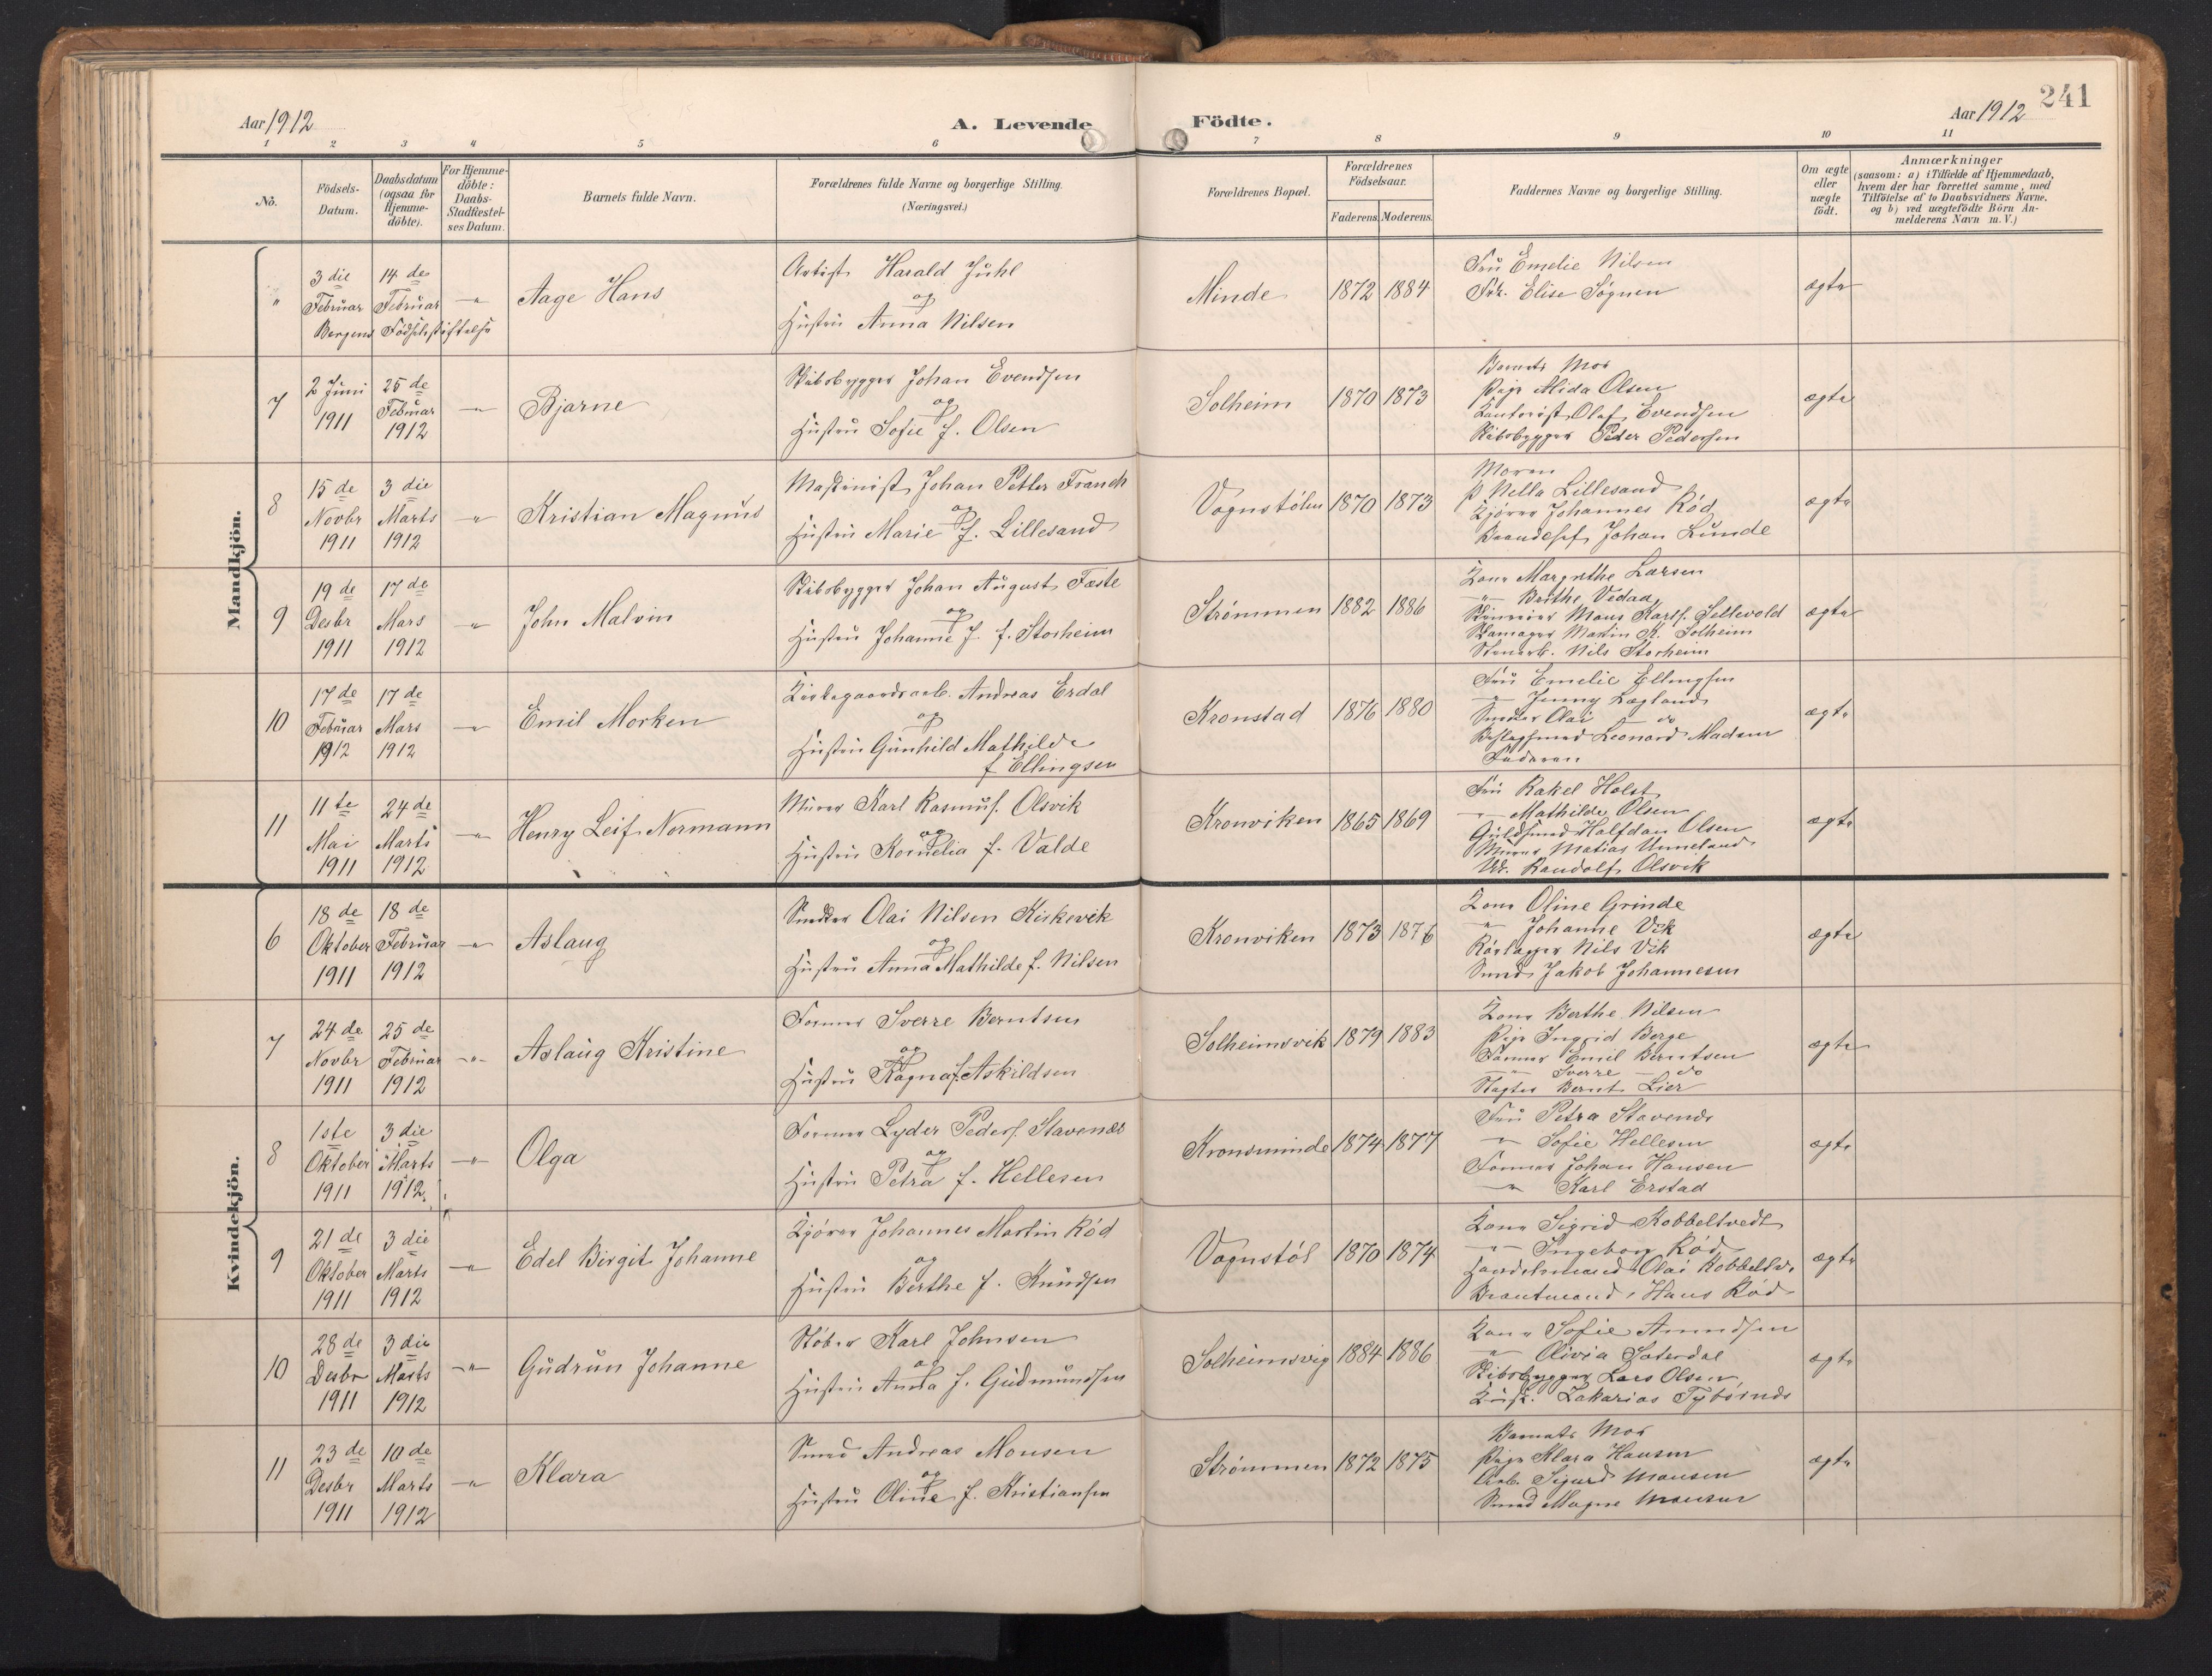 Aar 1912
A. Levende
Födte.
Aar 1912
241
1 2 3 4 5 6 7 8 9 10 11
No.
Födsels-Datum.
Daabsdatum (ogsaa for Hjemme-döbte).
For Hjemme-döbte: Daabs-Stadfæstel-ses Datum.
Barnets fulde Navn.
Forældrenes fulde Navne og borgerlige Stilling. (Næringsvei.)
Forældrenes Bopæl.
Forældrenes Födselsaar.
Faderens. Moderens.
Faddernes Navne og borgerlige Stilling.
Om ægte eller uægte födt.
Anmærkninger
(saasom: a) i Tilfælde af Hjemmedaab, hvem der har forrettet samme, med Tilföielse af to Daabsvidners Navne, og b) ved uægtefödte Börn An-melderens Navn m. V.)
Mandkjön.
" 3die Februar 14de Februar -"- Aage Hans
Bergens Födselsstiftelse
Artist Harald Juhl
og
Hustru Anna Nilsen
Minde 1872 1884
Fru Emelie Nilsen
Frk. Elise Søgnen
ægte
7 2 Juni 1911 25de Februar 1912 -"- Bjarne
Skibsbygger Johan Evendsen
og
Hustru Sofie f. Olsen
Solheim 1870 1873
Barnets Mor
Pige Alida Olsen
Kontorist Olaf Evendsen
Skibsbygger Peder Pedersen
ægte
8 15de Novbr 1911 3die Marts 1912 -"- Kristian Magnus
Maskinist Johan Petter Franck
og
Hustru Marie f. Lillesand
Vognstølen 1870 1873
Moren
P Nella Lillesand
Kjører Johannes Rød
Johan Lunde
ægte
9 19de Desbr 1911 17de Mars 1912 -"- John Malvin
Skibsbygger Johan August Fæste
og
Hustru Johanne J. f. Storheim
Strømmen 1882 1886
Kone Margrethe Larsen
-"- Berthe Vedaa
Mons Karls. Sellevold
Skomager Martin K. Solheim
Stenarb. Nils Storheim
ægte
10 17de Februar 1912 17de Mars 1912 -"- Emil Morken
Kirkegaardsarb. Andreas Erdal
og
Hustru Gunhild Mathilde
f Ellingsen
Kronstad 1876 1880
Fru Emelie Ellingsen
-"- Jenny Lægland
Smed Olai -"- do
Beslagsmed Leonard Madsen
Faderen
ægte
11 11te Mai 1911 24de Marts 1912 -"- Henry Leif Normann
Murer Karl Rasmus. Olsvik
og
Hustru Kornelia f. Valde
Kronviken 1865 1869
Fru Rakel Holst
-"- Mathilde Olsen
Guldsmed Halfdan Olsen
Murer Matias Unneland
Uk. Randolf Olsvik
ægte
Kvindekjön.
6 18de Oktober 1911 18de Februar 1912 -"- Aslaug
Olai Nilsen Kirkevik
og
Hustru Anna Mathilde f. Nilsen
Kronviken 1873 1876
Kone Oline Grinde
-"- Johanne Vik
Rørlægger Nils Vik
Smed Jakob Johannesen
ægte
7 24de Novbr 1911 25de Februar 1912 -"- Aslaug Kristine
Former Sverre Berntsen
og
Hustru Ragna f. Askildsen
Solheimsvik 1879 1883
Kone Berthe Nilsen
Pige Ingrid Berge
Former Emil Berntsen
-"- Sverre -"- do
Slagter Bernt Lier
ægte
8 1ste Oktober 1911 3die Marts 1912 -"- Olga
Former Lyder Peders. Stavenæs
og
Hustru Petra f. Hellesen
Kronsminde 1874 1877
Fru Petra Stavenes
-"- Sofie Hellesen
Former Johan Hansen
-"- Karl Erstad
ægte
9 21de Oktober 1911 3die Marts 1912 -"- Edel Birgit Johanne
Kjører Johannes Martin Rød
og
Hustru Berthe f. Knudsen
Vognstøl 1870 1874
Kone Sigrid Kobbeltvedt
-"- Ingeborg Rød
Handelsmand Olai Kobbeltv.
Hans Rød
ægte
10 28de Desbr 1911 3die Marts 1912 -"- Gudrun Johanne
Støber Karl Johnsen
og
Hustru Anna f. Gudmundsen
Solheimsvig 1884 1886
Kone Sofie Amundsen
-"- Olivia Saterdal
Skibsbygger Lars Olsen
Zakarias Tybsinds
ægte
11 23de Desbr 1911 10de Marts 1912 -"- Klara
Smed Andreas Monsen
og
Hustru Oline f. Kristiansen
Strømmen 1872 1875
Barnets Mor
Pige Klara Hansen
Arb. Sigurd Monsen
Smed Magne Monsen
ægte